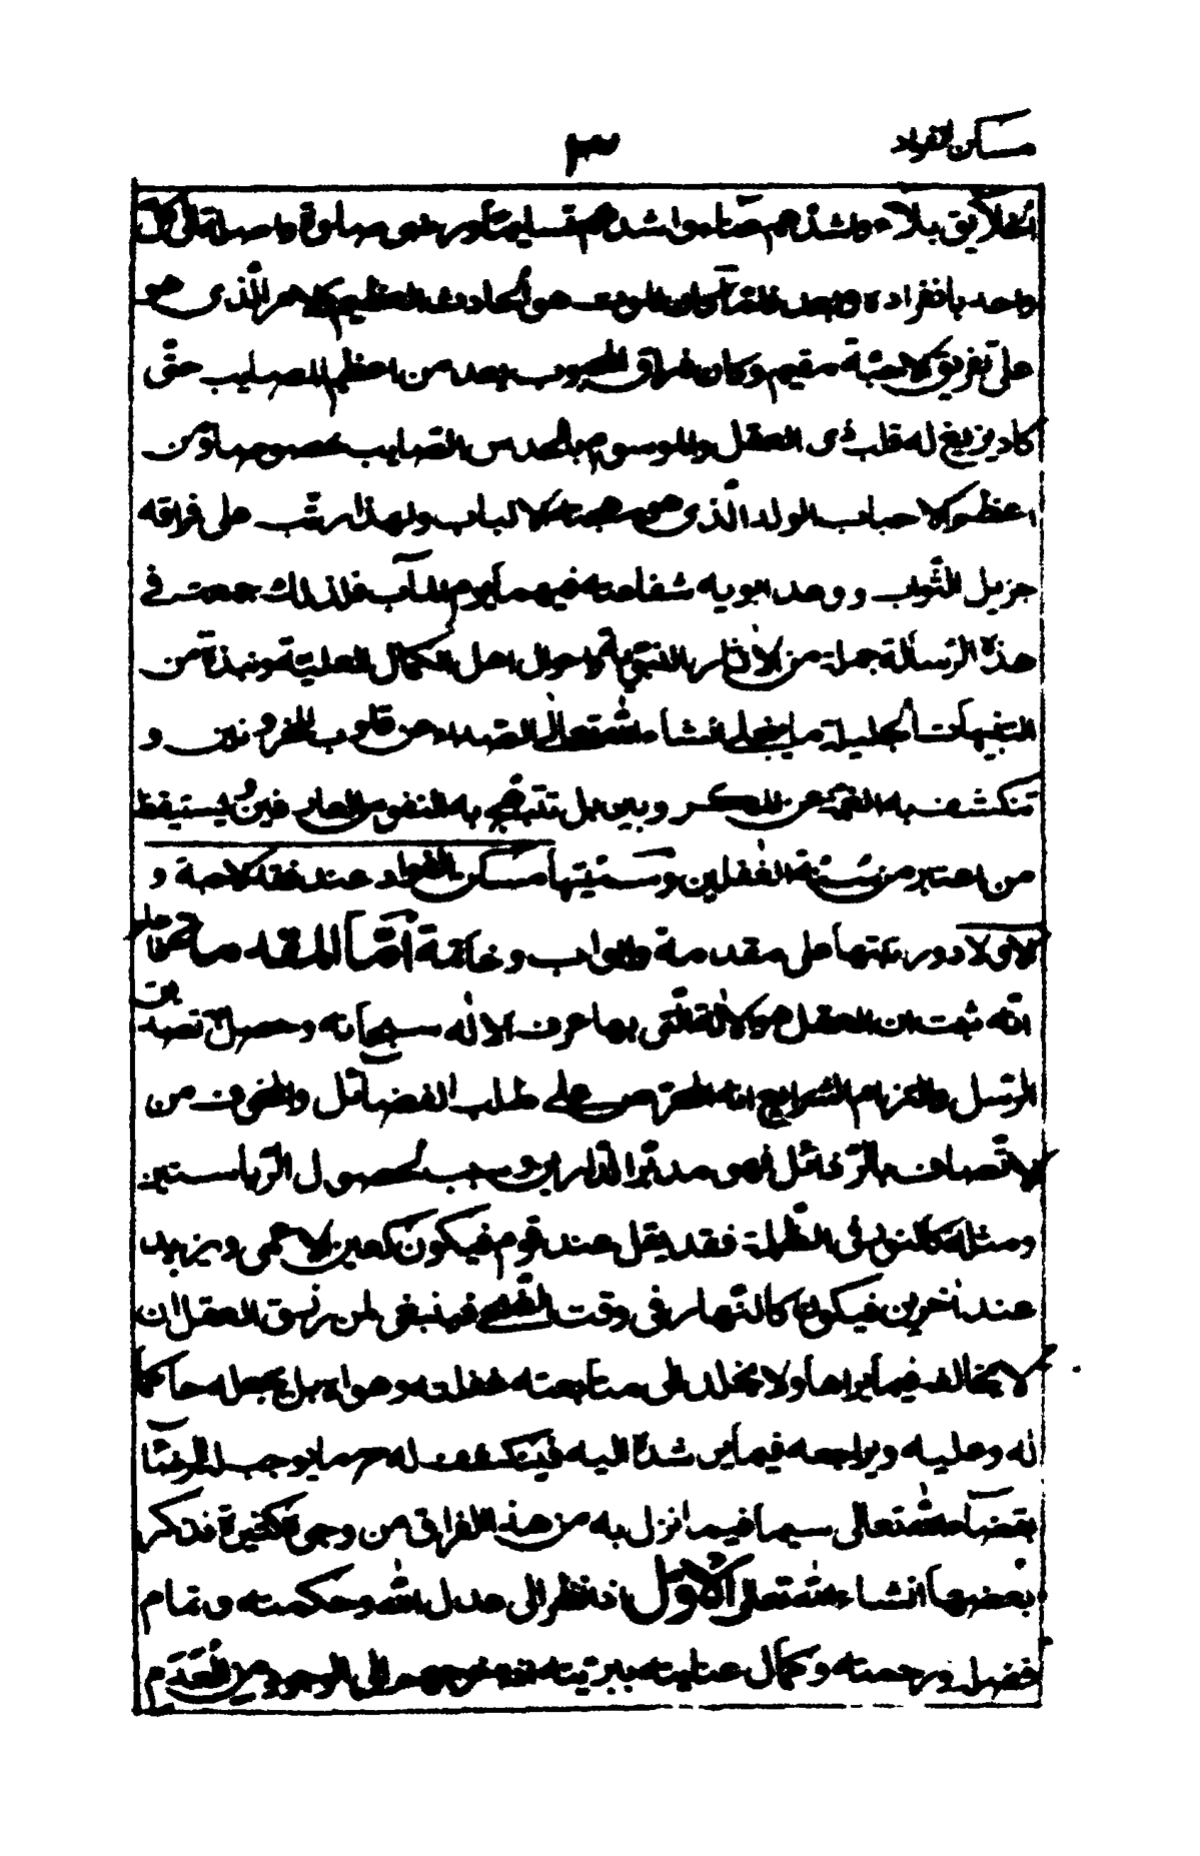 مسكن الفواد
٣
الخلائق بلاء واشدهم عناء واشدهم تسليما ورضى صلوة واصلة الى كل
واحد بانفراده وبعد فلما كان الموت هو الحادث العظيم والامر الذى هو
على تفريق الاحبة مقيم وكان فراق المحبوب يعد من اعظم المصايب حتى
كاد يزيغ له قلب ذى العقل والموسوم بالحدس الصايب خصوصا ومن
اعظم الاحباب الولد الذى هو مهجة الالباب ولهذا رتب على فراقه
جزيل الثواب ووعد ابويه شفاعته فيهما يوم المآب فلذلك جمعت فى
هذه الرسالة جملة من الاثار النبوية واحوال اهل الكمال العلية ونبذة من
التنبيهات الجلية ما ينجلى انشاء الله تعالى الصداء عن قلوب المحزونين و
تنكشف به الغمة عن المكروبين بل تبتهج به نفوس العارفين ويستيقظ
من اعتبر من سنة الغفلين وسميتها مسكن الفواد عند فقد الاحبة و
الاولاد ورتبتها على مقدمة وابواب وخاتمة اما المقدمة فاعلم
انه ثبت ان العقل هو الالة التى بها عرف الاله سبحانه وحصل تصديق
الرسل والتزام الشرايع انه المحرص على طلب الفضائل والمخوف من
الاتصاف بالرذائل فهو مدبر الدارين وسبب لحصول الرياستين
ومثله كالنور فى الظلمة فقد يقل عند قوم فيكون كعين الاعمى ويزيد
عند اخرين فيكون كالنهار فى وقت الضحى فينبغى لمن رزق العقل ان
لا يخالف فيما يراه ولا يخلد الى متابعة غفلته وهواه بل يجعله حاكما
له وعليه ويراجعه فيما يرشده اليه فينكشف له ح ما يوجب الرضا
بقضاء الله تعالى سيما فيما نزل به من هذا الفراق من وجوه كثيرة نذكر
بعضها انشاء الله تعالى الاول اذا نظر الى عدل الله وحكمته وتمام
فضله ورحمته وكمال عنايته ببريته اذ اخرجهم الى الوجود من العدم